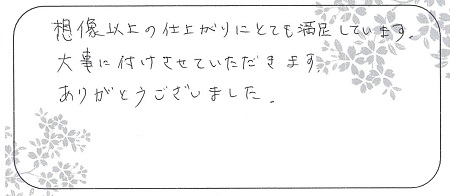 想像以上の仕上がりにとても満足しています。
大事に付けさせていただきます。
ありがとうございました。